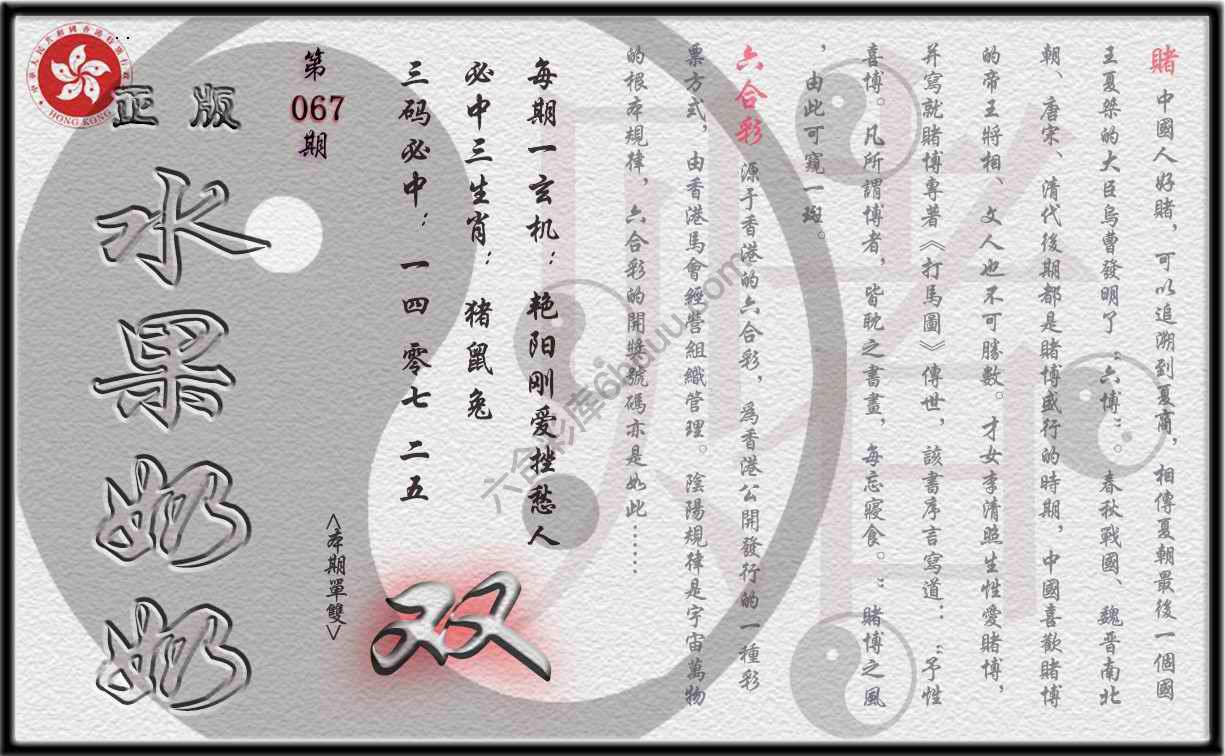 賭 中國人好賭，可以追溯到夏商，相傳夏朝最後一個國
王夏桀的大臣烏曹發明了“六博”。春秋戰國、魏晋南北
朝、唐宋、清代後期都是賭博盛行的時期，中國喜歡賭博
的帝王將相、文人也不可勝數。才女李清照生性愛賭博，
并寫就賭博專著《打馬圖》傳世，該書序言寫道：“予性
喜博。凡所謂博者，皆耽之書畫，每忘寢食。”賭博之風
，由此可窺一斑。
六合彩 源于香港的六合彩，爲香港公開發行的一種彩
票方式，由香港馬會經營組織管理。陰陽規律是宇宙萬物
的根本規律，六合彩的開獎號碼亦是如此……
每期一玄机：艳阳刚爱挫愁人
必中三生肖：猪鼠兔
三码必中：一四 零七 二五
双
<本期單雙>
第
067
期
正版
水果奶奶
HONG KONG
六合彩库6hduu.com